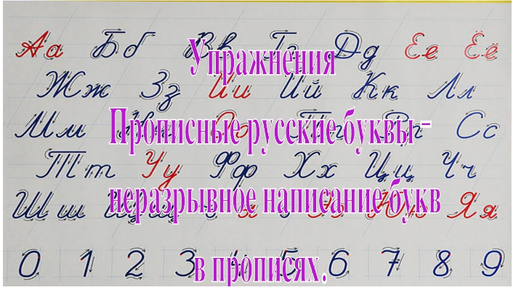 Аа Бб Вв Гг Дд Ее Ёё
Упражнения
Жж Зз Ии Йй Кк Лл
Прописные русские буквы-
Мм Нн Оо Сс
Тт Уу Фф Хх Цц Чч
неразрывное написание букв
Шш Щщ Юю Яя
в прописях.
0 1 2 3 4 5 6 7 8 9